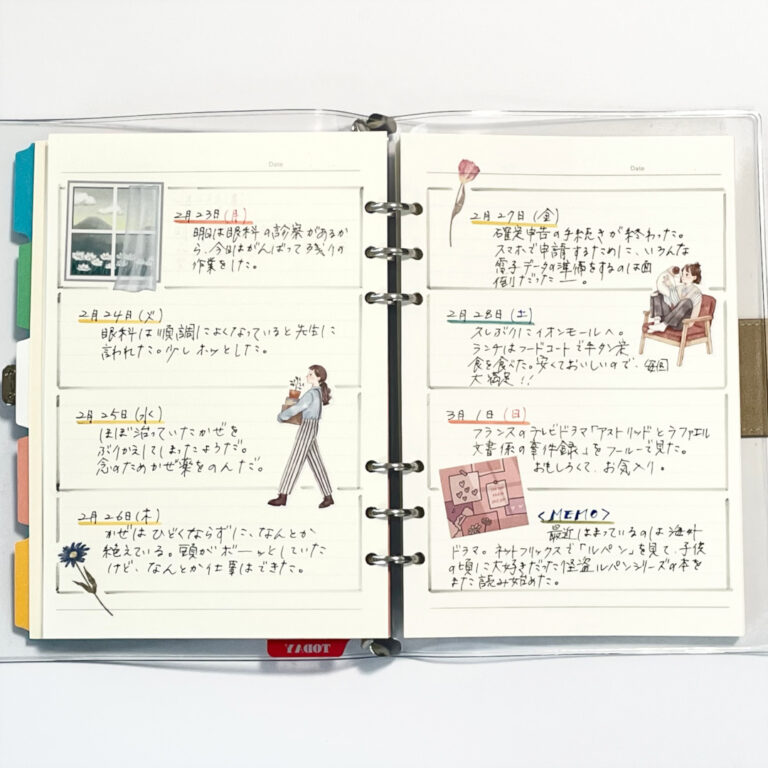 Date
2月23日(月)
明日は眼科の診察があるか
ら、今日はがんばって残りの
作業をした。
2月24日(火)
眼科は順調によくなっていると先生に
言われた。少しホッとした。
2月25日(水)
ほぼ治っていたかぜを
ぶりかえしてしまったようだ。
念のためかぜ薬をのんだ。
2月26日(木)
かぜはひどくならずに、なんとか
絶えている。頭がボーッとしていた
けど、なんとか仕事はできた。
TODAY
Date
2月27日(金)
確定申告の手続きが終わった。
スマホで申請するために、いろんな
電子データの準備をするのは面
倒だったー。
2月28日(土)
久しぶりにイオンモールへ。
ランチはフードコートで牛タン定
食を食べた。安くておいしいので、毎回
大満足!!
3月1日(日)
フランスのテレビドラマ「アストリッドとラファエル
文書係の事件録」をフールーで見た。
おもしろくて、お気入り。
<MEMO>
最近はまっているのは海外
ドラマ。ネットフリックスで「ルパン」を見て、子供
の頃に大好きだった怪盗ルパンシリーズの本を
また読み始めた。